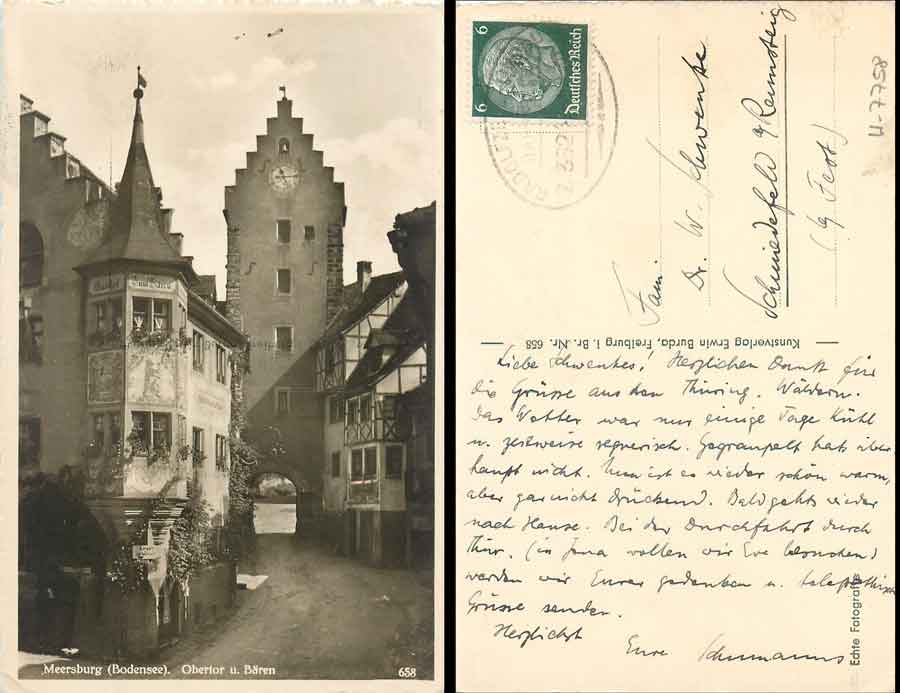 Meersburg (Bodensee). Obertor u. Bären
658
6 Deutsches Reich 6
Fam.
Dr. W. Schwenke
Schmiedefeld a/ Rennsteig
(b/ Fest)
H-7758
Kunstverlag Erwin Burda, Freiburg i. Br. Nr. 658
Liebe Schwenkes! Herzlichen Dank für
die Grüsse aus den Thüring. Wäldern.
Das Wetter war nur einige Tage kühl
u. zeitweise regnerisch. Gegraupelt hats über
haupt nicht. Nun ist es wieder schön warm,
aber garnicht drückend. Bald gehts wieder
nach Hause. Bei der Durchfahrt durch
Thür. (in Jena wollen wir Eve besuchen)
werden wir Eurer gedenken u. telepathisch
Grüsse senden.
Herzlichst
Eure Schumanns
Echte Fotografie